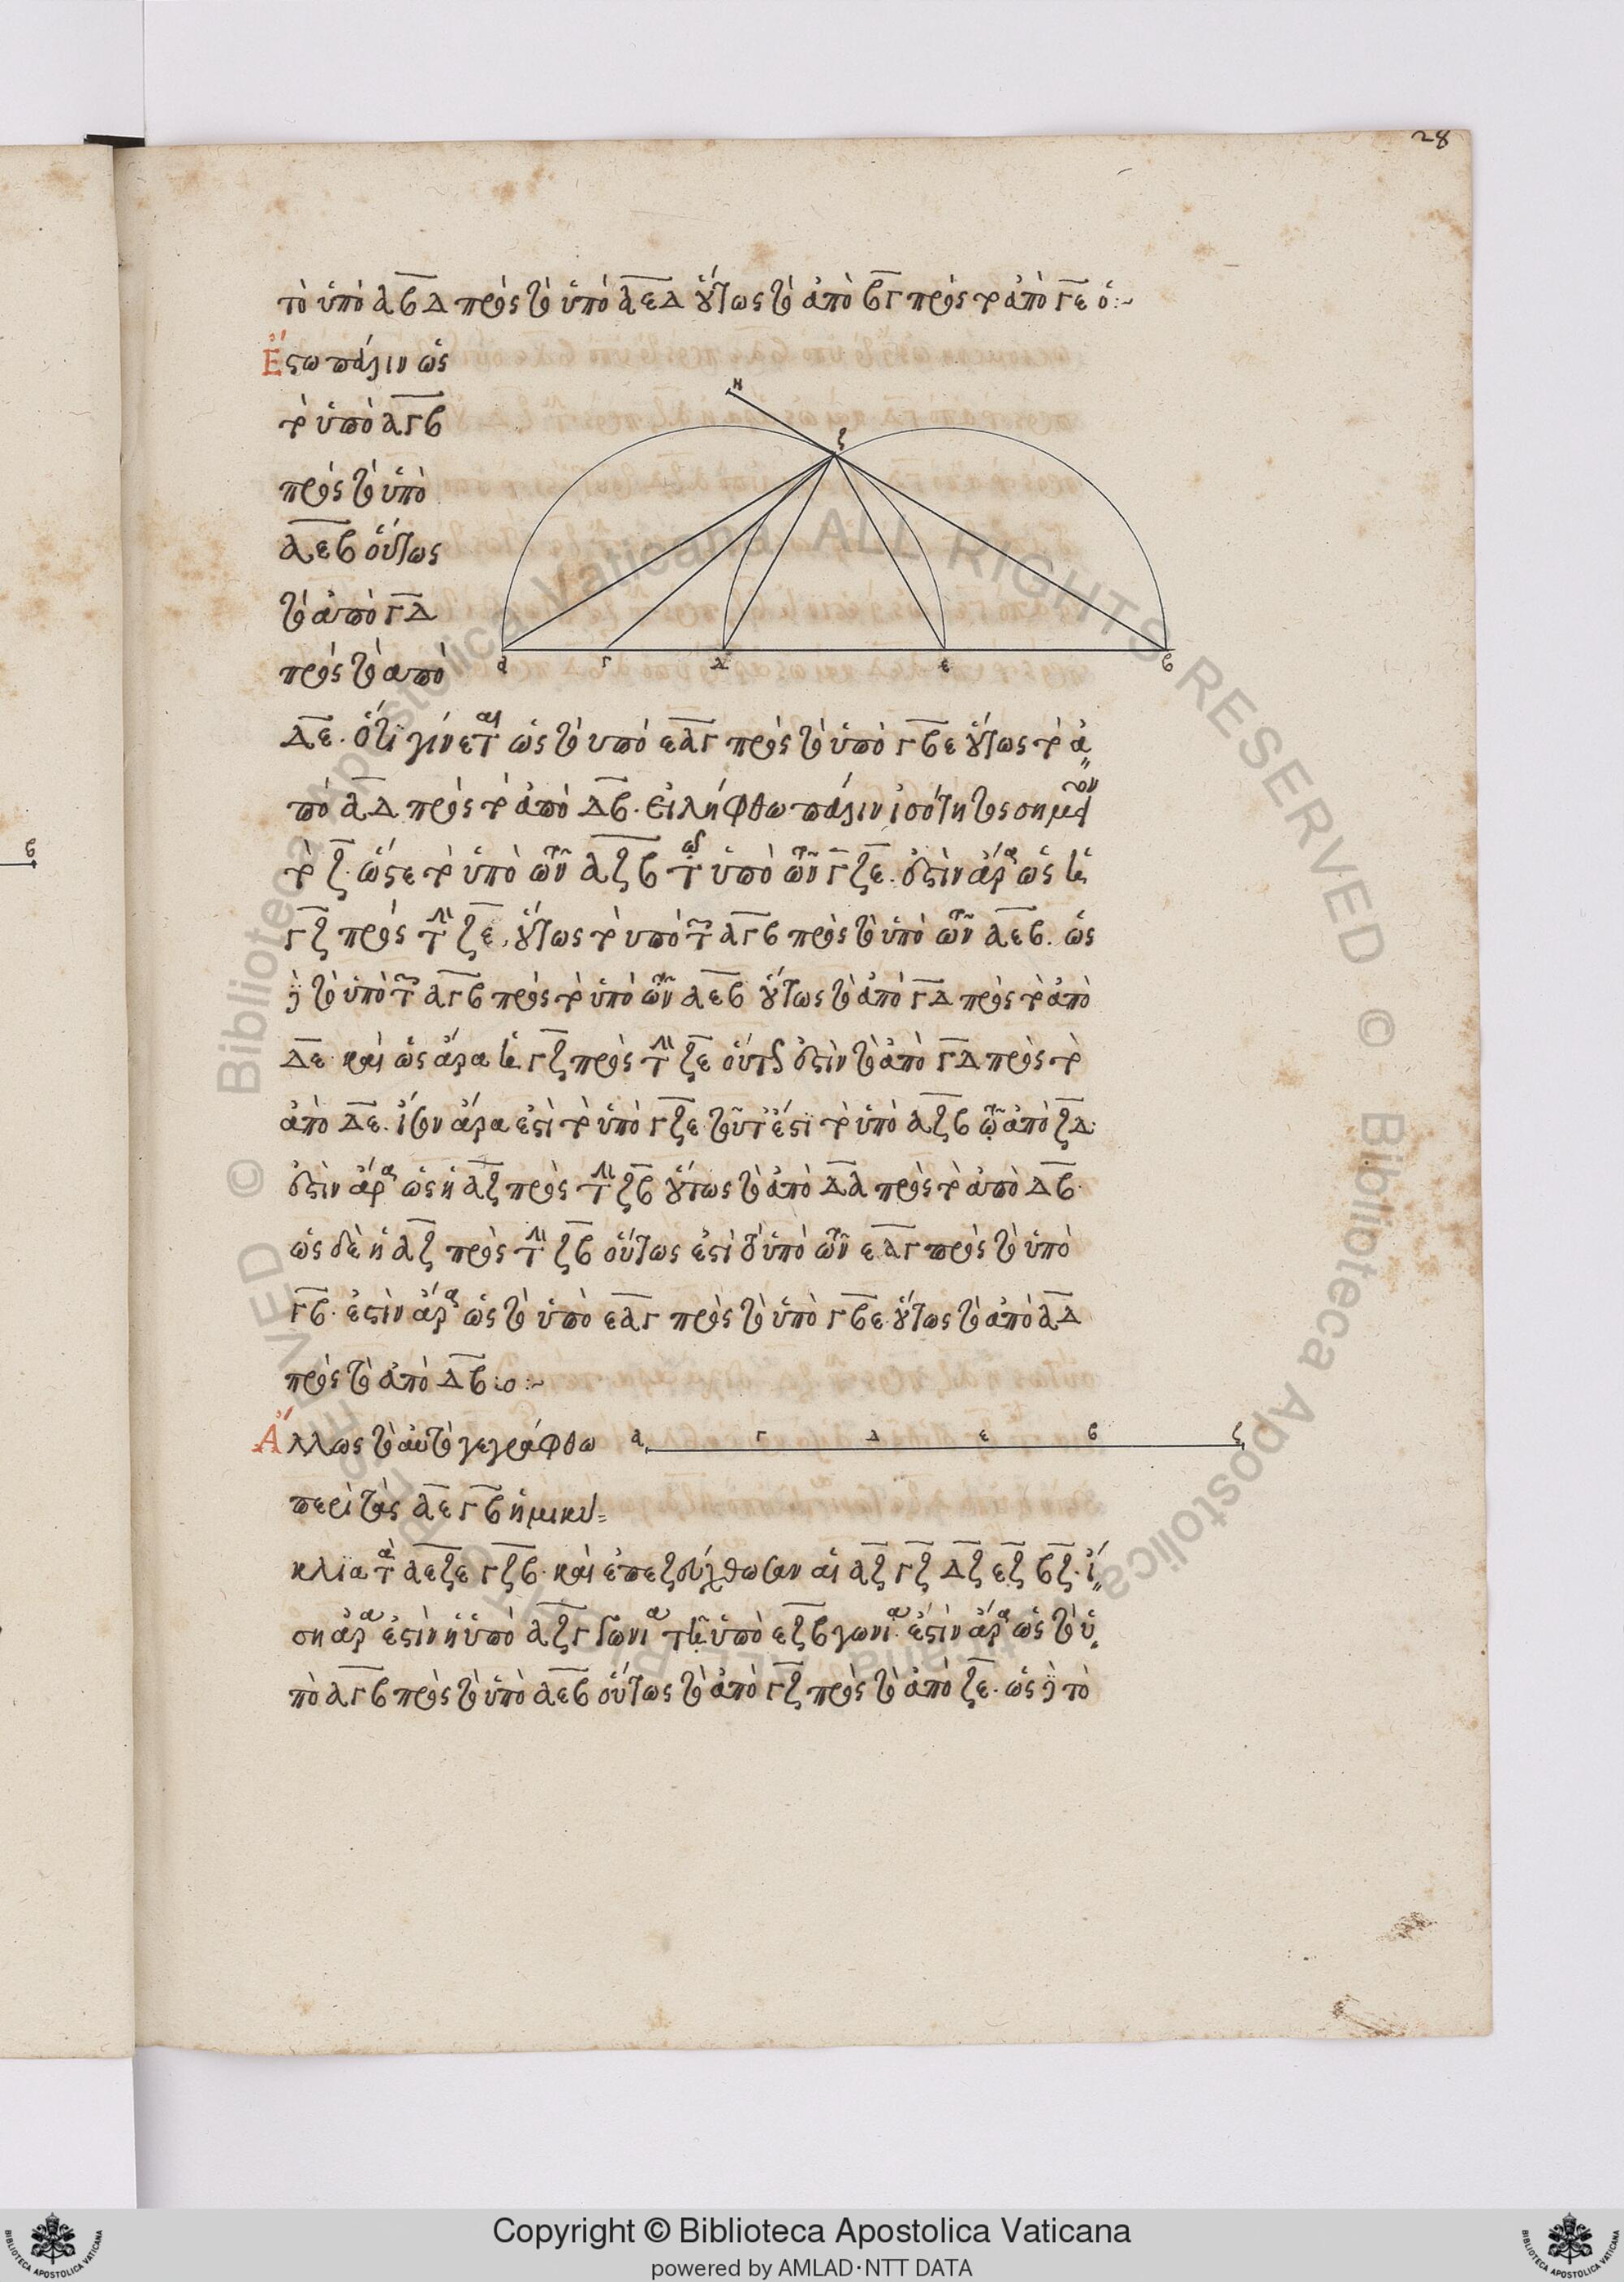 28
τὸ ὑπὸ ΑΒΔ πρὸς τὸ ὑπὸ ΑΕΔ οὕτως τὸ ἀπὸ ΒΓ πρὸς τὸ ἀπὸ ΓΕ ὅ:~
Ἔστω πάλιν ὡς
τὸ ὑπὸ ΑΓΒ
πρὸς τὸ ὑπὸ
ΑΕΒ οὕτως
τὸ ἀπὸ ΓΔ
πρὸς τὸ ἀπὸ
Η
Ζ
Α Γ Δ Ε Β
ΔΕ. ὅτι γίνεται ὡς τὸ ὑπὸ ΕΑΓ πρὸς τὸ ὑπὸ ΓΒΕ οὕτως τὸ ἀ
πὸ ΑΔ πρὸς τὸ ἀπὸ ΔΒ. εἰλήφθω πάλιν ἰσότητος σημεῖον
τὸ Ζ. ὥστε τὸ ὑπὸ τῶν ΑΖΒ τῷ ὑπὸ τῶν ΓΖΕ. ἔστιν ἄρα ὡς ἡ
ΓΖ πρὸς τὴν ΖΕ, οὕτως τὸ ὑπὸ τῶν ΑΓΒ πρὸς τὸ ὑπὸ τῶν ΑΕΒ. ὡς
δὲ τὸ ὑπὸ τῶν ΑΓΒ πρὸς τὸ ὑπὸ τῶν ΑΕΒ οὕτως τὸ ἀπὸ ΓΔ πρὸς τὸ ἀπὸ
ΔΕ. καὶ ὡς ἄρα ἡ ΓΖ πρὸς τὴν ΖΕ οὕτως ἐστὶν τὸ ἀπὸ ΓΔ πρὸς τὸ
ἀπὸ ΔΕ. ἴσον ἄρα ἐστὶ τὸ ὑπὸ ΓΖΕ τουτέστι τὸ ὑπὸ ΑΖΒ τῷ ἀπὸ ΖΔ.
ἔστιν ἄρα ὡς ἡ ΑΖ πρὸς τὴν ΖΒ οὕτως τὸ ἀπὸ ΔΑ πρὸς τὸ ἀπὸ ΔΒ.
ὡς δὲ ἡ ΑΖ πρὸς τὴν ΖΒ οὕτως ἐστὶ τὸ ὑπὸ τῶν ΕΑΓ πρὸς τὸ ὑπὸ
ΓΒ. ἐστὶν ἄρα ὡς τὸ ὑπὸ ΕΑΓ πρὸς τὸ ὑπὸ ΓΒΕ. οὕτως τὸ ἀπὸ ΑΔ
πρὸς τὸ ἀπὸ ΔΒ :ο:~
Ἄλλως τὸ αὐτὸ γεγράφθω
Α Γ Δ Ε Β Ζ
περὶ τὰς ΑΕ ΓΒ ἡμικύ
κλια τὰ ΑΕΖΕ ΓΖΒ. καὶ ἐπεζεύχθωσαν αἱ ΑΖ ΓΖ ΔΖ ΕΖ ΒΖ. ἴ
ση ἄρα ἐστὶν ἡ ὑπὸ ΑΖΓ γωνία τῇ ὑπὸ ΕΖΒ γωνίᾳ. ἐστὶν ἄρα ὡς τὸ ὑ
πὸ ΑΓΒ πρὸς τὸ ὑπὸ ΑΕΒ οὕτως τὸ ἀπὸ ΓΖ πρὸς τὸ ἀπὸ ΖΕ. ὡς δὲ τὸ
Β
© Biblioteca Apostolica Vaticana ALL RIGHTS RESERVED © Biblioteca Apostolica Vaticana ALL RIGHTS RESERVED
Copyright © Biblioteca Apostolica Vaticana
powered by AMLAD·NTT DATA
BIBLIOTECA APOSTOLICA VATICANA
BIBLIOTECA APOSTOLICA VATICANA